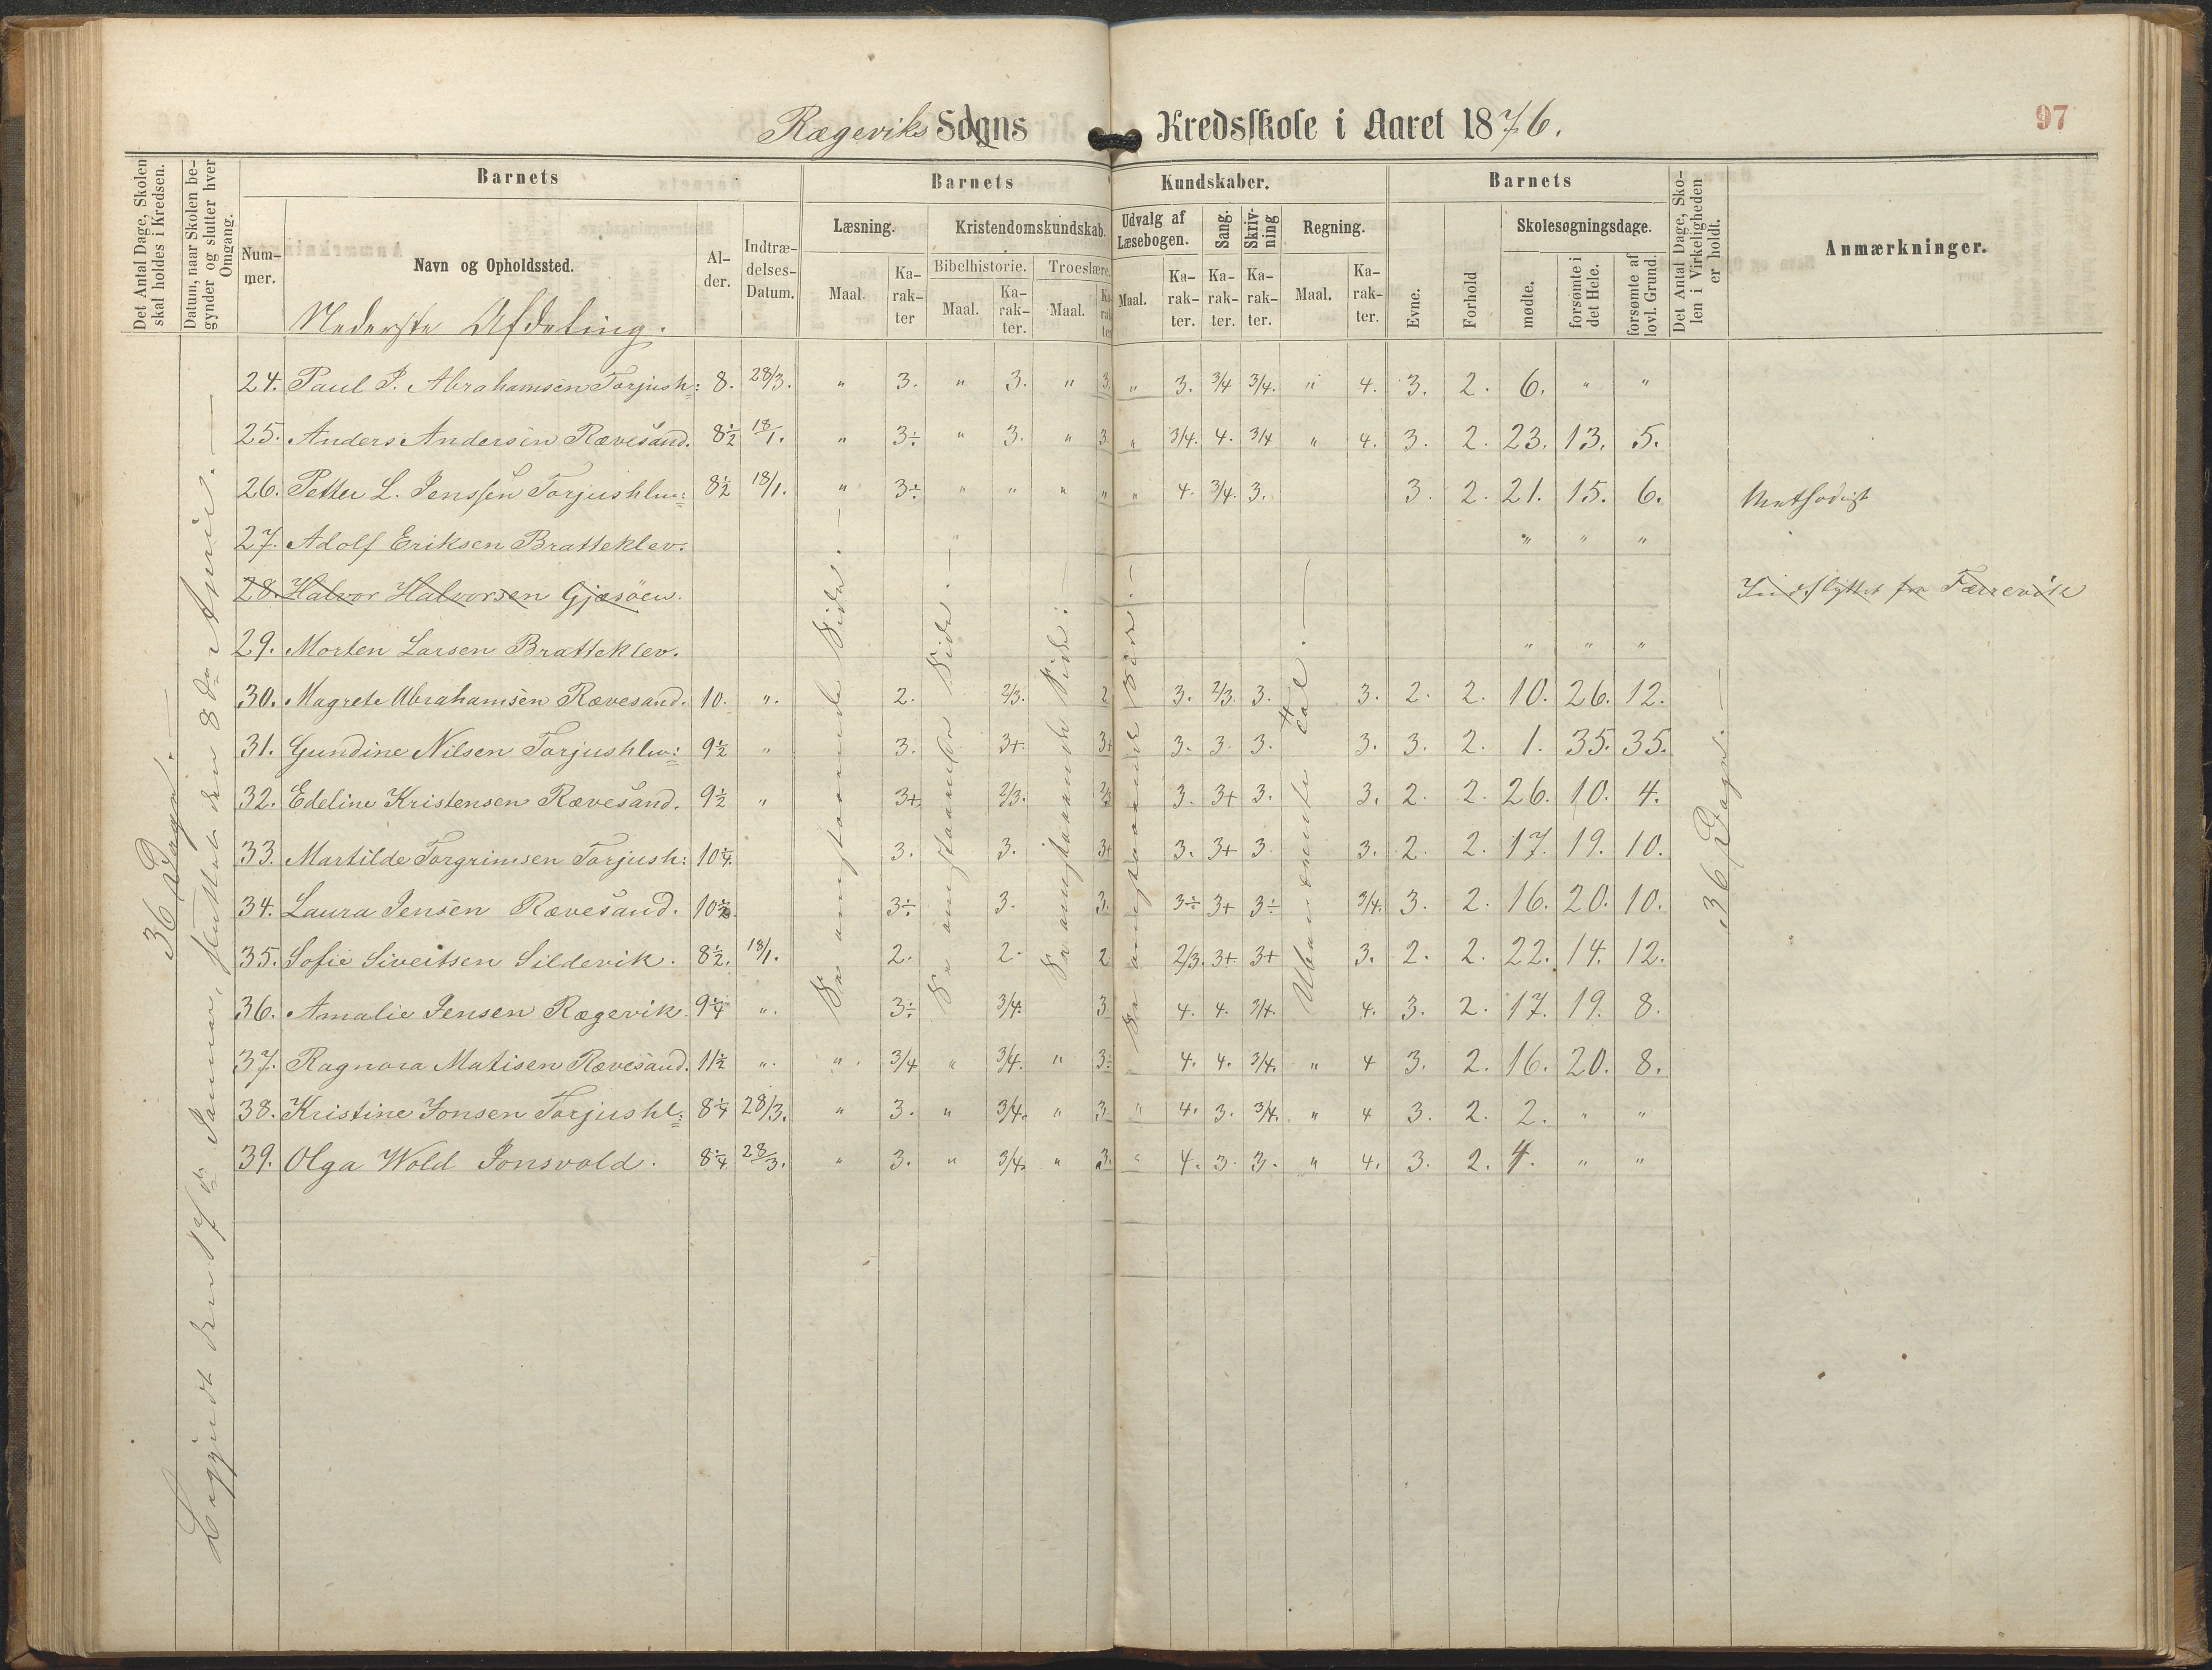 Rægeviks Sogns Kredsskole i Aaret 1876.
97
Det Antal Dage, Skolen skal holdes i Kredsen.
Datum, naar Skolen begynder og slutter hver Omgang.
Barnets
Nummer.
Navn og Opholdssted.
Nederste Afdeling.
Alder.
Indtrædelses-Datum.
Barnets Kundskaber.
Læsning.
Maal.
Karakter
Kristendomskundskab.
Bibelhistorie.
Maal.
Karakter.
Troeslære.
Maal.
Karakter
Udvalg af Læsebogen.
Maal.
Karakter.
Sang.
Karakter.
Skrivning
Karakter.
Regning.
Maal.
Karakter.
Barnets
Evne.
Forhold
Skolesøgningsdage.
mødte.
forsømte i det Hele.
forsømte af lovl. Grund.
Det Antal Dage, Skolen i Virkeligheden er holdt.
Anmærkninger.
36 Dage.
den 17de Januar, sluttet den 8de April.
24. Paul P. Abrahamsen Torjush: 8. 28/3. " 3. " 3. " 3. " 3. 3/4 3/4. " 4. 3. 2. 6. " "
25. Anders Andersen Rævesand. 8½ 18/1. " 3÷ " 3. " 3. " 3/4. 4. 3/4 " 4. 3. 2. 23. 13. 5.
26. Petter L. Jenssen Torjushlm: 8½ 18/1. " 3÷ " " " " " 4. 3/4. 3. 3. 2. 21. 15. 6.
27. Adolf Eriksen Bratteklev. " " "
28. Halvor Halvorsen Gjæsöen. Indflyttet fra Færevik
29. Morten Larsen Bratteklev. " " "
30. Magrete Abrahamsen Rævesand. 10. ". 2. 2/3. 2 3. 2/3. 3. 3. 2. 2. 10. 26. 12.
31. Gundine Nilsen Torjushlm: 9½ " 3. 3+ 3+ 3. 3. 3. 3. 3. 2. 1. 35. 35.
32. Edeline Kristensen Rævesand. 9½ " 3+ 2/3. 2/3 3. 3+ 3. 3. 2. 2. 26. 10. 4.
33. Martilde Torgrimsen Torjush: 10¼. 3. 3. 3+ 3. 3+ 3. 3. 2. 2. 17. 19. 10.
34. Laura Jensen Rævesand. 10½. 3÷ 3. 3. 3÷ 3+ 3÷ 3/4. 3. 2. 16. 20. 10.
35. Sofie Siveitsen Sildevik. 8½. 18/1. 2. 2. 2 2/3. 3+ 3+ 3. 2. 2. 22. 14. 12.
36. Amalie Jensen Rægevik. 9¼ ". 3÷ 3/4. 3. 4. 4. 3/4. 4. 3. 2. 17. 19. 8.
37. Ragnara Matisen Rævesand. 11½ ". ". 3/4 " 3/4. " 3÷ 4. 4. 3/4. " 4 3. 2. 16. 20. 8.
38. Kristine Jonsen Torjushl: 8¼ 28/3. " 3. " 3/4. " 3. " 4. 3. 3/4. " 4 3. 2. 2. " "
39. Olga Wold Jonsvold. 8¼ 28/3. " 3. " 3/4. " 3. " 4. 3. 3. " 4. 3. 2. 4. " "
Se anstaaende Side.
Se anstaaende Side.
Se anstaaende Side.
Se anstaaende Side.
Ubenævnte Tal.
36 Dage.